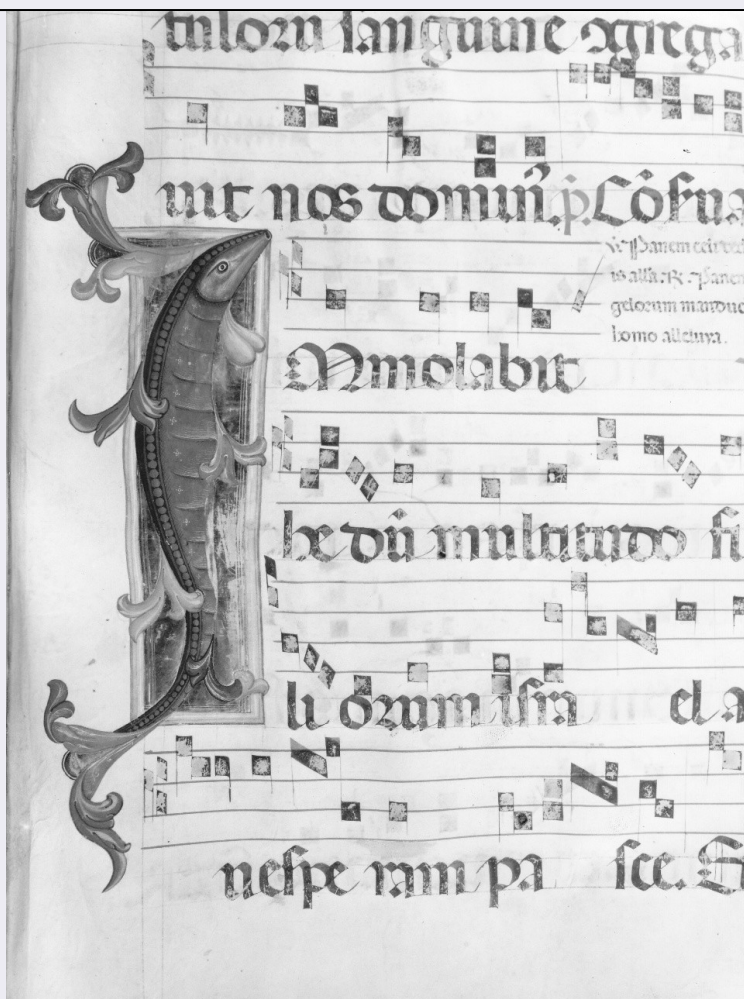 tulorū sanguine
uit nos domin̄. p̄. Cōserua
ꝟ. Panem celi
is alľa. ꝶ. Panem
gelorum manduc
homo alleluya.
Mmolabit
he dū multitudo fi
li orum isra el a
uespe ram pa sce. E